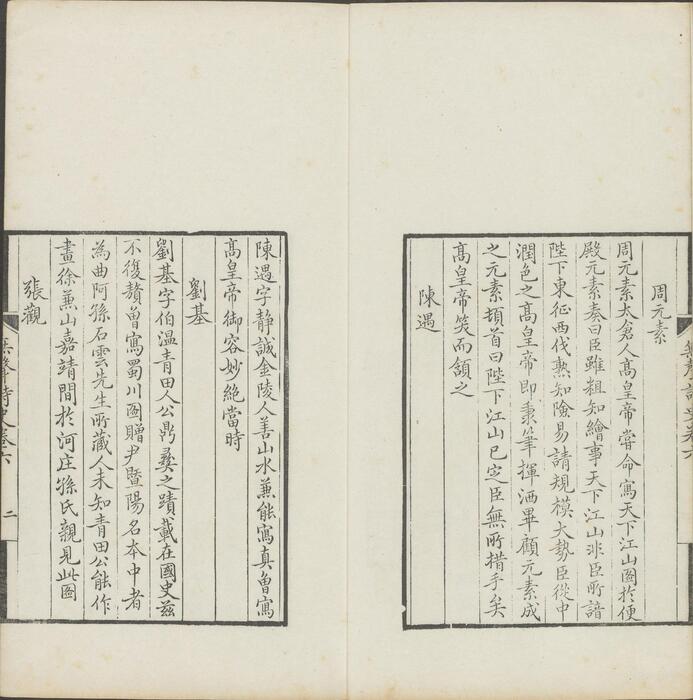 周元素
周元素太倉人髙皇帝嘗命寫天下江山圖於便
殿元素奏曰臣雖粗知繪事天下江山非臣所諳
陛下東征西伐熟知險易請規模大勢臣從中
潤色之髙皇帝即秉筆揮洒畢顧元素成
之元素頓首曰陛下江山已定臣無所措手矣
髙皇帝笑而頷之
陳遇
無聲詩史卷六
陳遇字静誠金陵人善山水兼能寫真曽寫
髙皇帝御容妙絶當時
劉基
劉基字伯温青田人公鼎彝之蹟載在國史兹
不復贅曽寫蜀川圖贈尹暨陽名本中者
為曲阿孫石雲先生所藏人未知青田公能作
畫徐兼山嘉靖間於河庄孫氏親見此圖
張觀
無聲詩史卷六
二